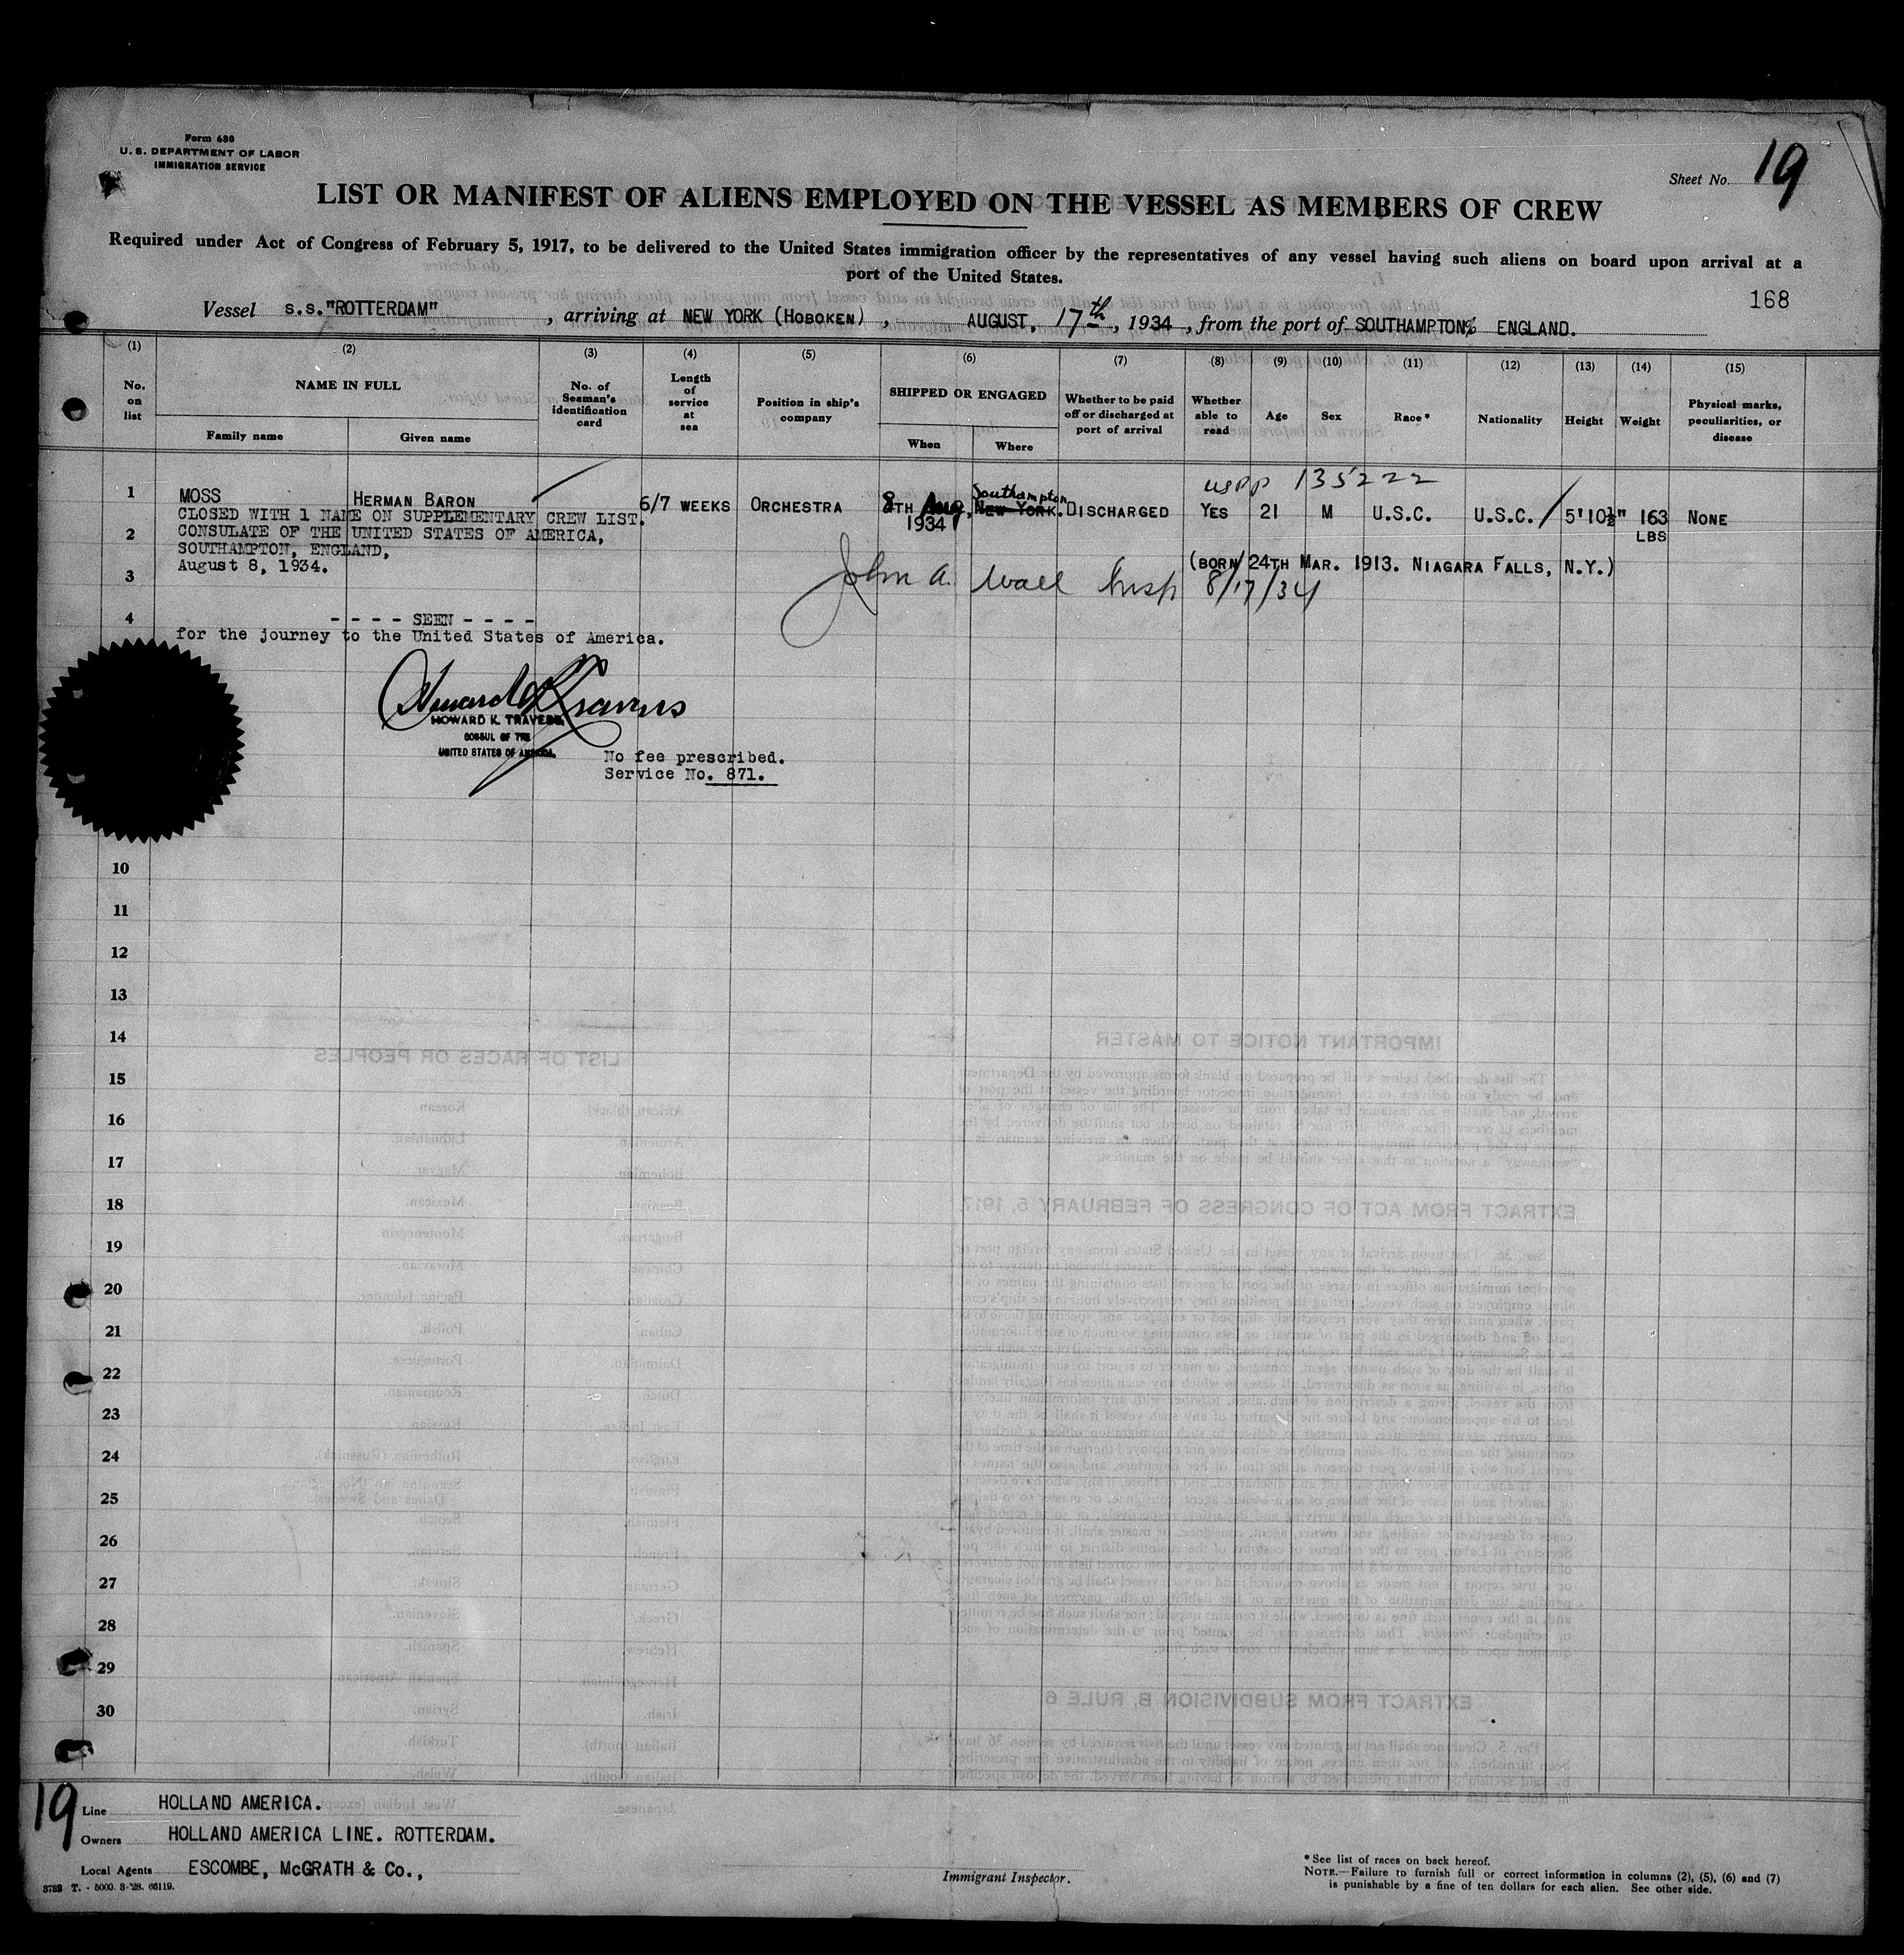 Form 680
U. S. DEPARTMENT OF LABOR
IMMIGRATION SERVICE
Sheet No. 19
LIST OR MANIFEST OF ALIENS EMPLOYED ON THE VESSEL AS MEMBERS OF CREW
Required under Act of Congress of February 5, 1917, to be delivered to the United States immigration officer by the representatives of any vessel having such aliens on board upon arrival at a
port of the United States.
168
Vessel S.S."ROTTERDAM", arriving at NEW YORK (HOBOKEN), AUGUST, 17th, 1934, from the port of SOUTHAMPTON ENGLAND.
(1) (2) (3) (4) (5) (6) (7) (8) (9) (10) (11) (12) (13) (14) (15)
No. on list
NAME IN FULL
Family name
Given name
No. of Seaman's identification card
Length of service at sea
Position in ship's company
SHIPPED OR ENGAGED
When
Where
Whether to be paid off or discharged at port of arrival
Whether able to read
Age
Sex
Race*
Nationality
Height
Weight
Physical marks, peculiarities, or disease
uspp 135222
Southampton
1 MOSS HERMAN BARON 6/7 WEEKS ORCHESTRA 8TH Aug, NEW YORK. DISCHARGED YES 21 M U.S.C. U.S.C. 5'10½" 163 NONE
1934
LBS
CLOSED WITH 1 NAME ON SUPPLEMENTARY CREW LIST.
2 CONSULATE OF THE UNITED STATES OF AMERICA,
SOUTHAMPTON, ENGLAND,
August 8, 1934.
(BORN 24TH MAR. 1913. NIAGARA FALLS, N.Y.)
3
John A. Wall Insp 8/17/34
4 - - - - SEEN - - - -
for the journey to the United States of America.
Howard K Travers
HOWARD K. TRAVERS,
CONSUL OF THE
UNITED STATES OF AMERICA.
No fee prescribed.
Service No. 871.
10
11
12
13
14
15
16
17
18
19
20
21
22
23
24
25
26
27
28
29
30
19
Line HOLLAND AMERICA.
Owners HOLLAND AMERICA LINE. ROTTERDAM.
Local Agents ESCOMBE, McGRATH & Co.,
3732 T. - 5000. 3-'28. 66119.
Immigrant Inspector.
*See list of races on back hereof.
NOTE.—Failure to furnish full or correct information in columns (2), (5), (6) and (7)
is punishable by a fine of ten dollars for each alien. See other side.